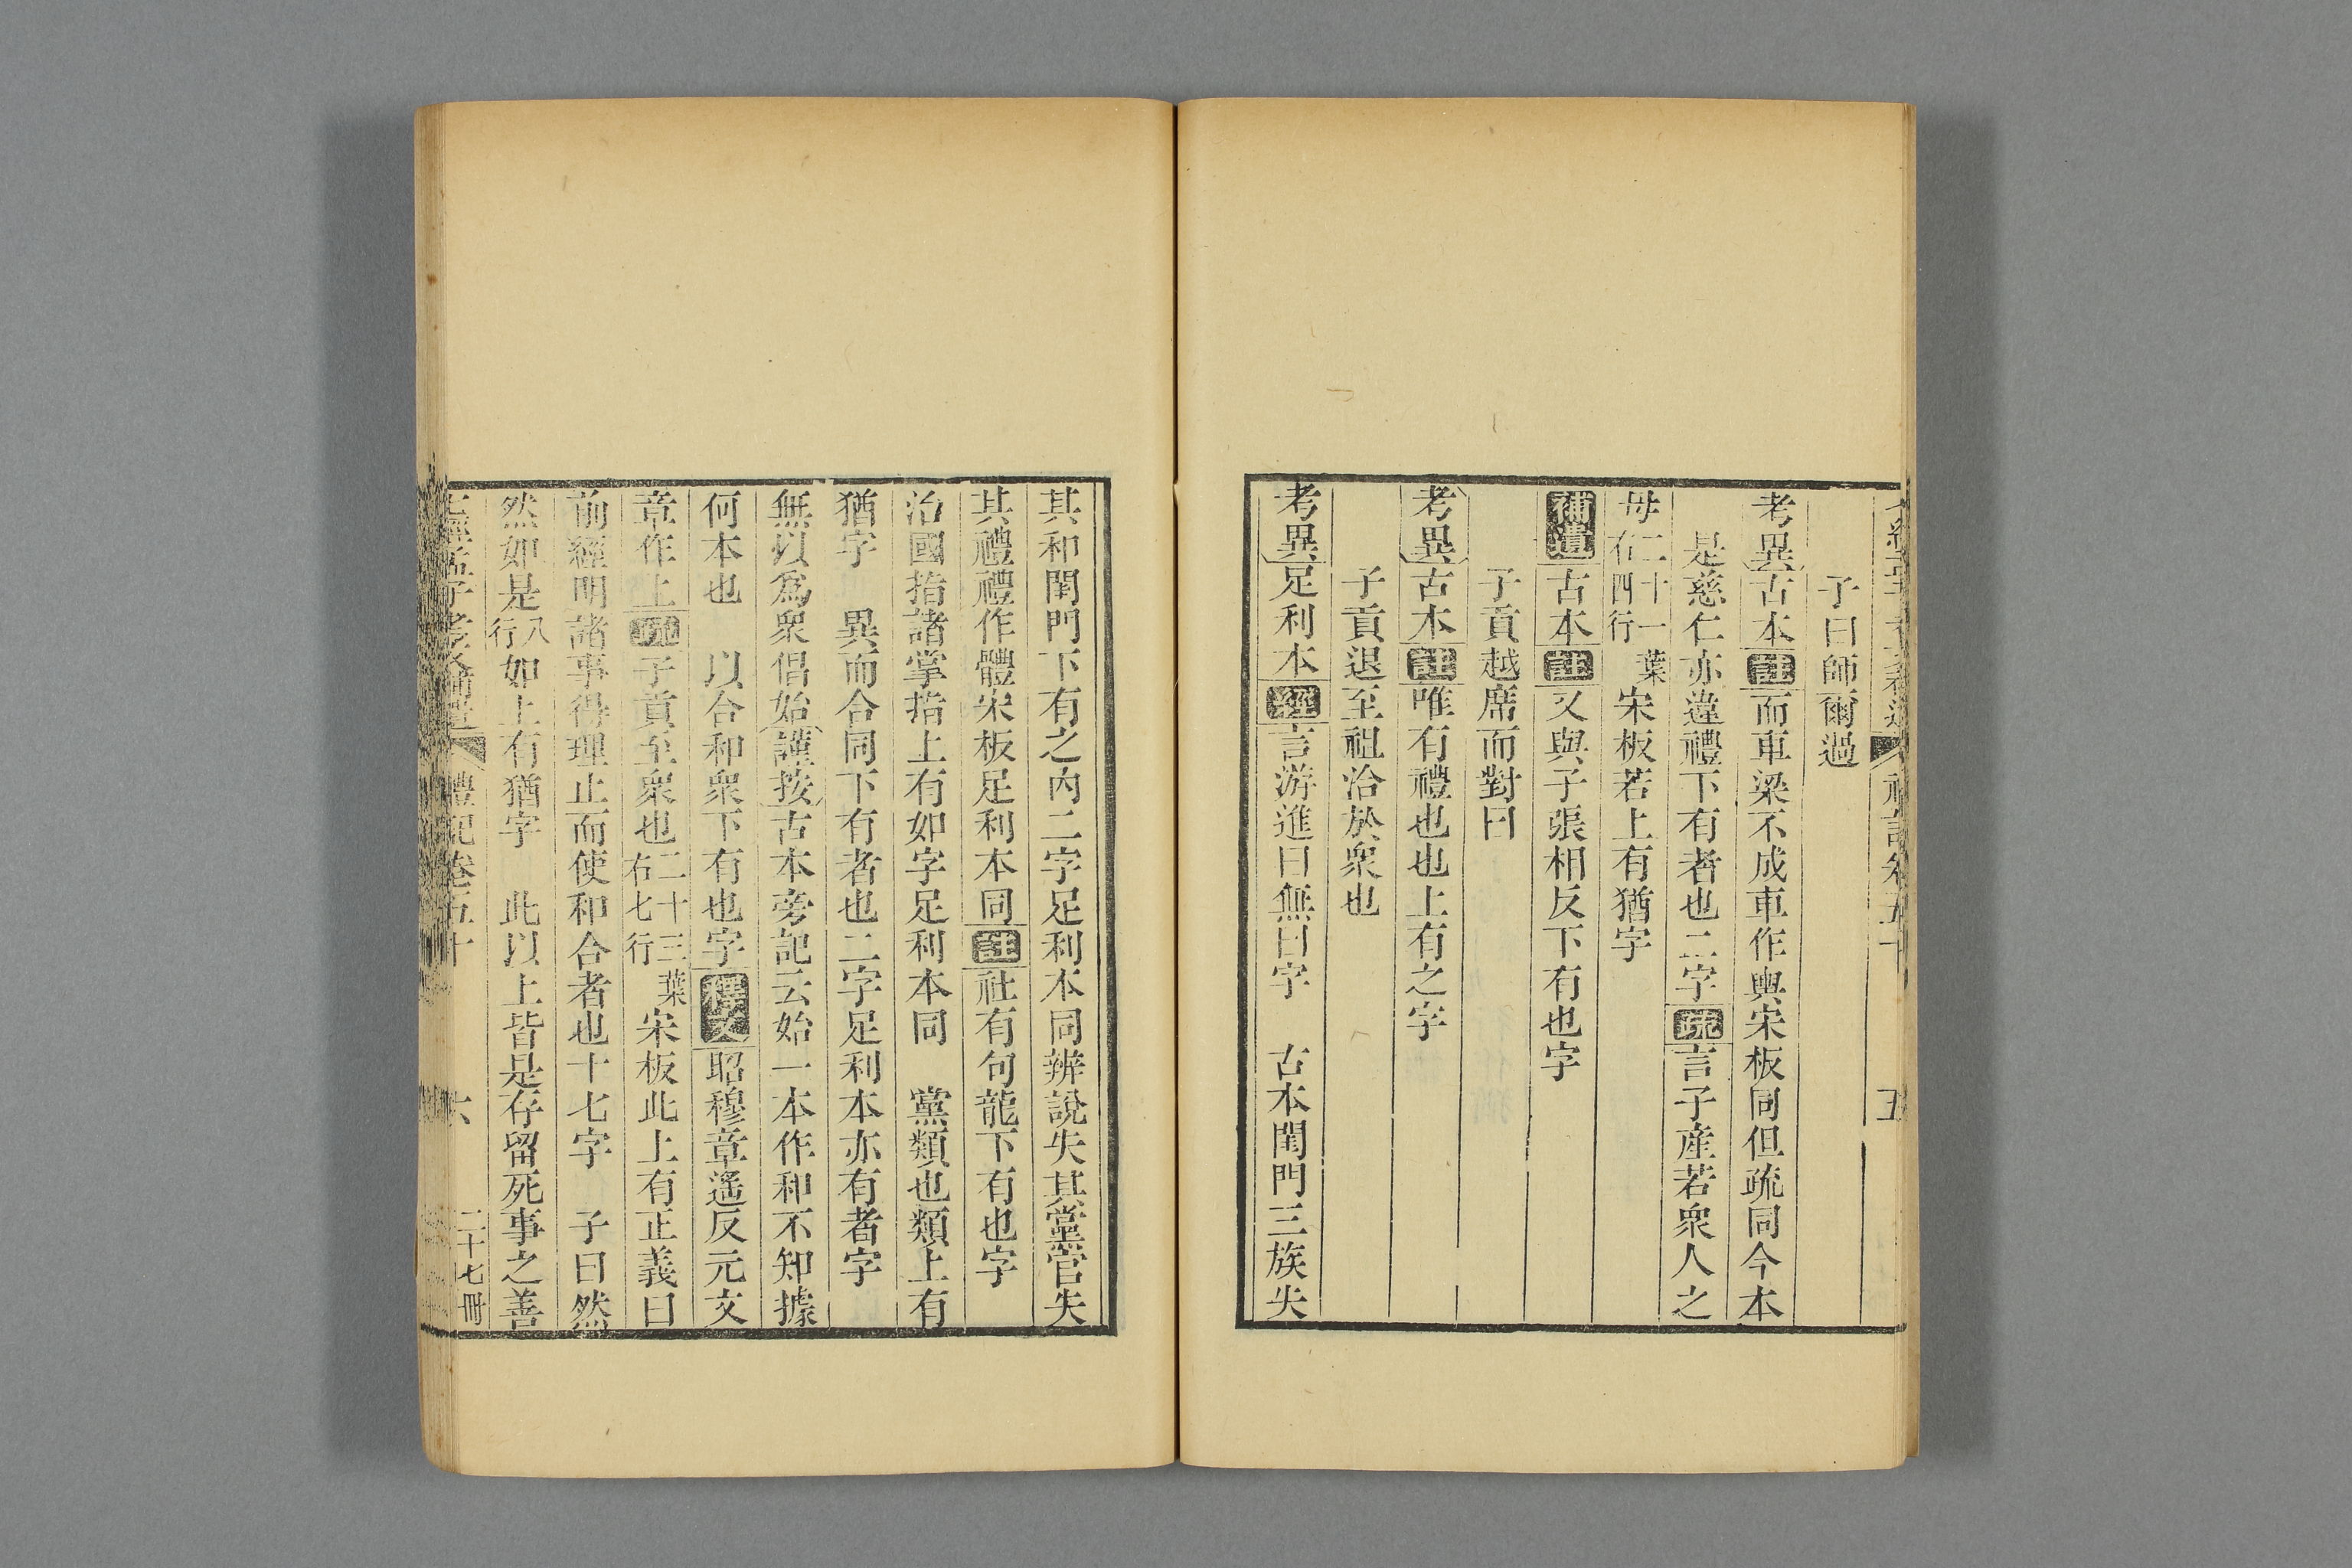 五
子曰師爾過
考異古本註而車梁不成車作輿宋板同但疏同今本
是慈仁亦違禮下有者也二字疏言子產若衆人之
母二十一葉右四行宋板若上有猶字
補遺古本註又與子張相反下有也字
子貢越席而對曰
考異古本註唯有禮也也上有之字
子貢退至祖洽於衆也
考異足利本經言游進曰無曰字　古本閨門三族失
其和閨門下有之内二字足利本同辨說失其黨官失
其禮禮作體宋板足利本同註社有句龍下有也字
治國指諸掌指上有如字足利本同　黨類也類上有
猶字　異而合同下有者也二字足利本亦有者字
無以爲衆倡始謹按古本旁記云始一本作和不知據
何本也　以合和衆下有也字釋文昭穆章遙反元文
章作上疏子貢至衆也二十三葉右七行宋板此上有正義曰
前經明諸事得理止而使和合者也十七字　子曰然
然如是八行如上有猶字　此以上皆是存留死事之善
七經孟子考文補遺　禮記卷五十　六　二十七冊